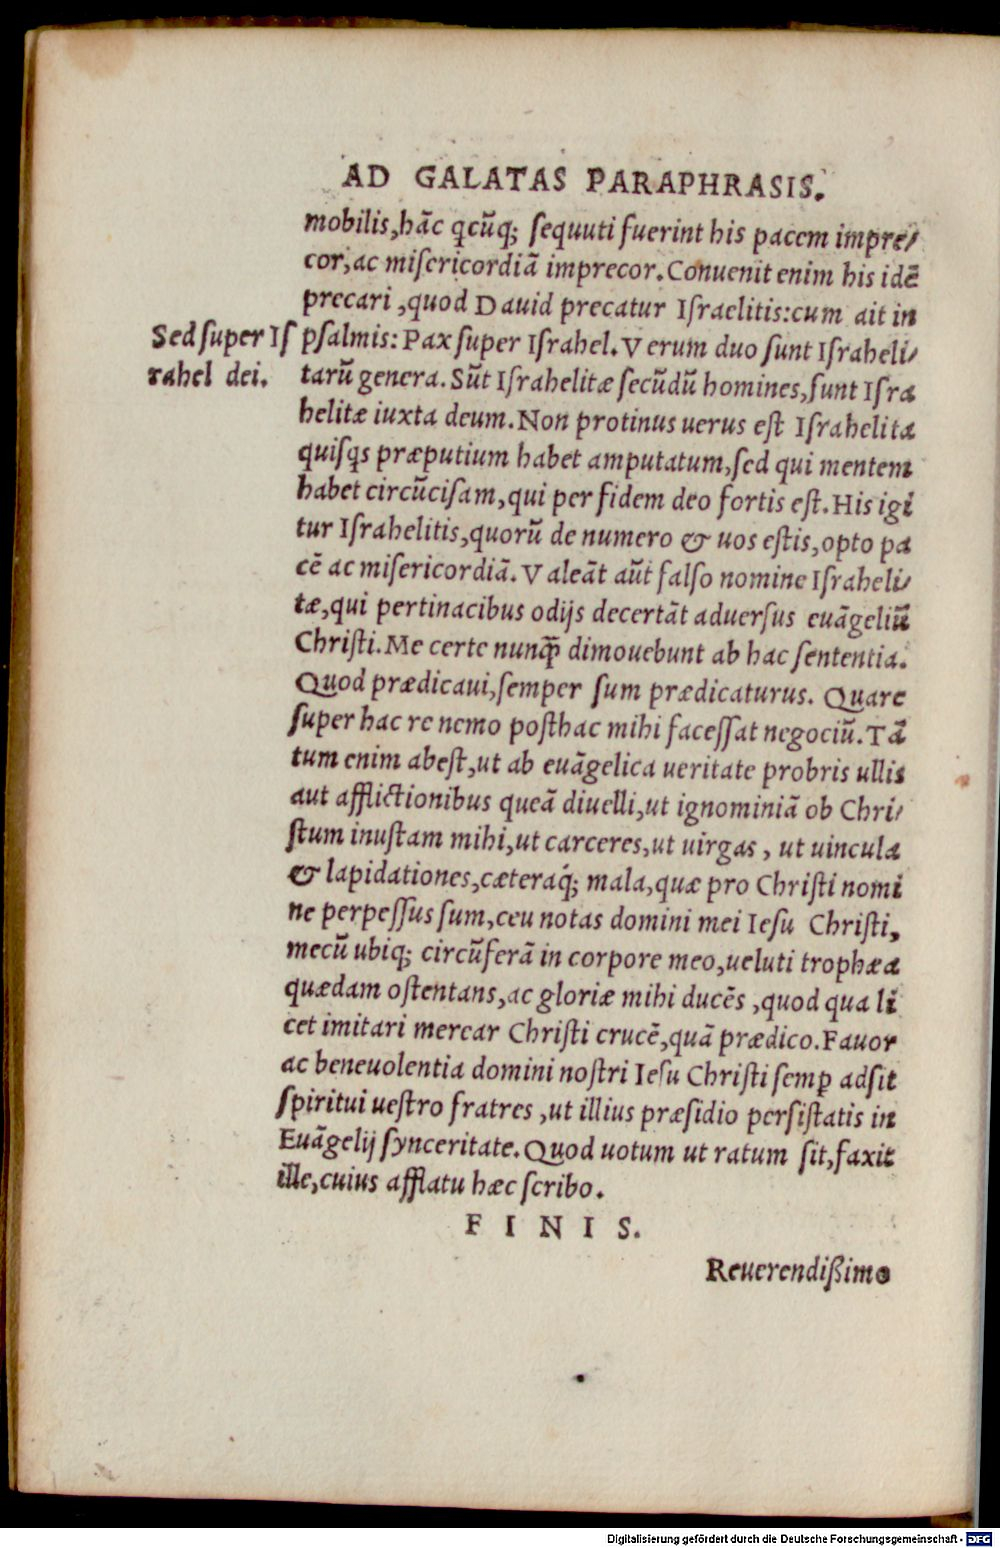 AD GALATAS PARAPHRASIS.
mobilis, hãc qcũq; sequuti fuerint his pacem impre/
cor, ac misericordiã imprecor. Conuenit enim his idẽ
precari, quod Dauid precatur Israelitis: cum ait in
Sed super Is
rahel dei.
psalmis: Pax super Israhel. Verum duo sunt Israheli/
tarũ genera. Sũt Israhelitæ secũdũ homines, sunt Isra
helitæ iuxta deum. Non protinus uerus est Israhelita
quisqs præputium habet amputatum, sed qui mentem
habet circũcisam, qui per fidem deo fortis est. His igi
tur Israhelitis, quorũ de numero & uos estis, opto pa
cẽ ac misericordiã. Valeãt aũt falso nomine Israheli/
tæ, qui pertinacibus odijs decertãt aduersus euãgeliũ
Christi. Me certe nunq̃ dimouebunt ab hac sententia.
Quod prædicaui, semper sum prædicaturus. Quare
super hac re nemo posthac mihi facessat negociũ. Tã
tum enim abest, ut ab euãgelica ueritate probris ullis
aut afflictionibus queã diuelli, ut ignominiã ob Chri/
stum inustam mihi, ut carceres, ut uirgas, ut uincula
& lapidationes, cæteraq́; mala, quæ pro Christi nomi
ne perpessus sum, ceu notas domini mei Iesu Christi,
mecũ ubiq; circũferã in corpore meo, ueluti trophæa
quædam ostentans, ac gloriæ mihi ducẽs, quod qua li
cet imitari merear Christi crucẽ, quã prædico. Fauor
ac beneuolentia domini nostri Iesu Christi semꝑ adsit
spiritui uestro fratres, ut illius præsidio persistatis in
Euãgelij synceritate. Quod uotum ut ratum sit, faxit
ille, cuius afflatu hæc scribo.
F I N I S.
Reuerendißimo
Digitalisierung gefördert durch die Deutsche Forschungsgemeinschaft - DFG